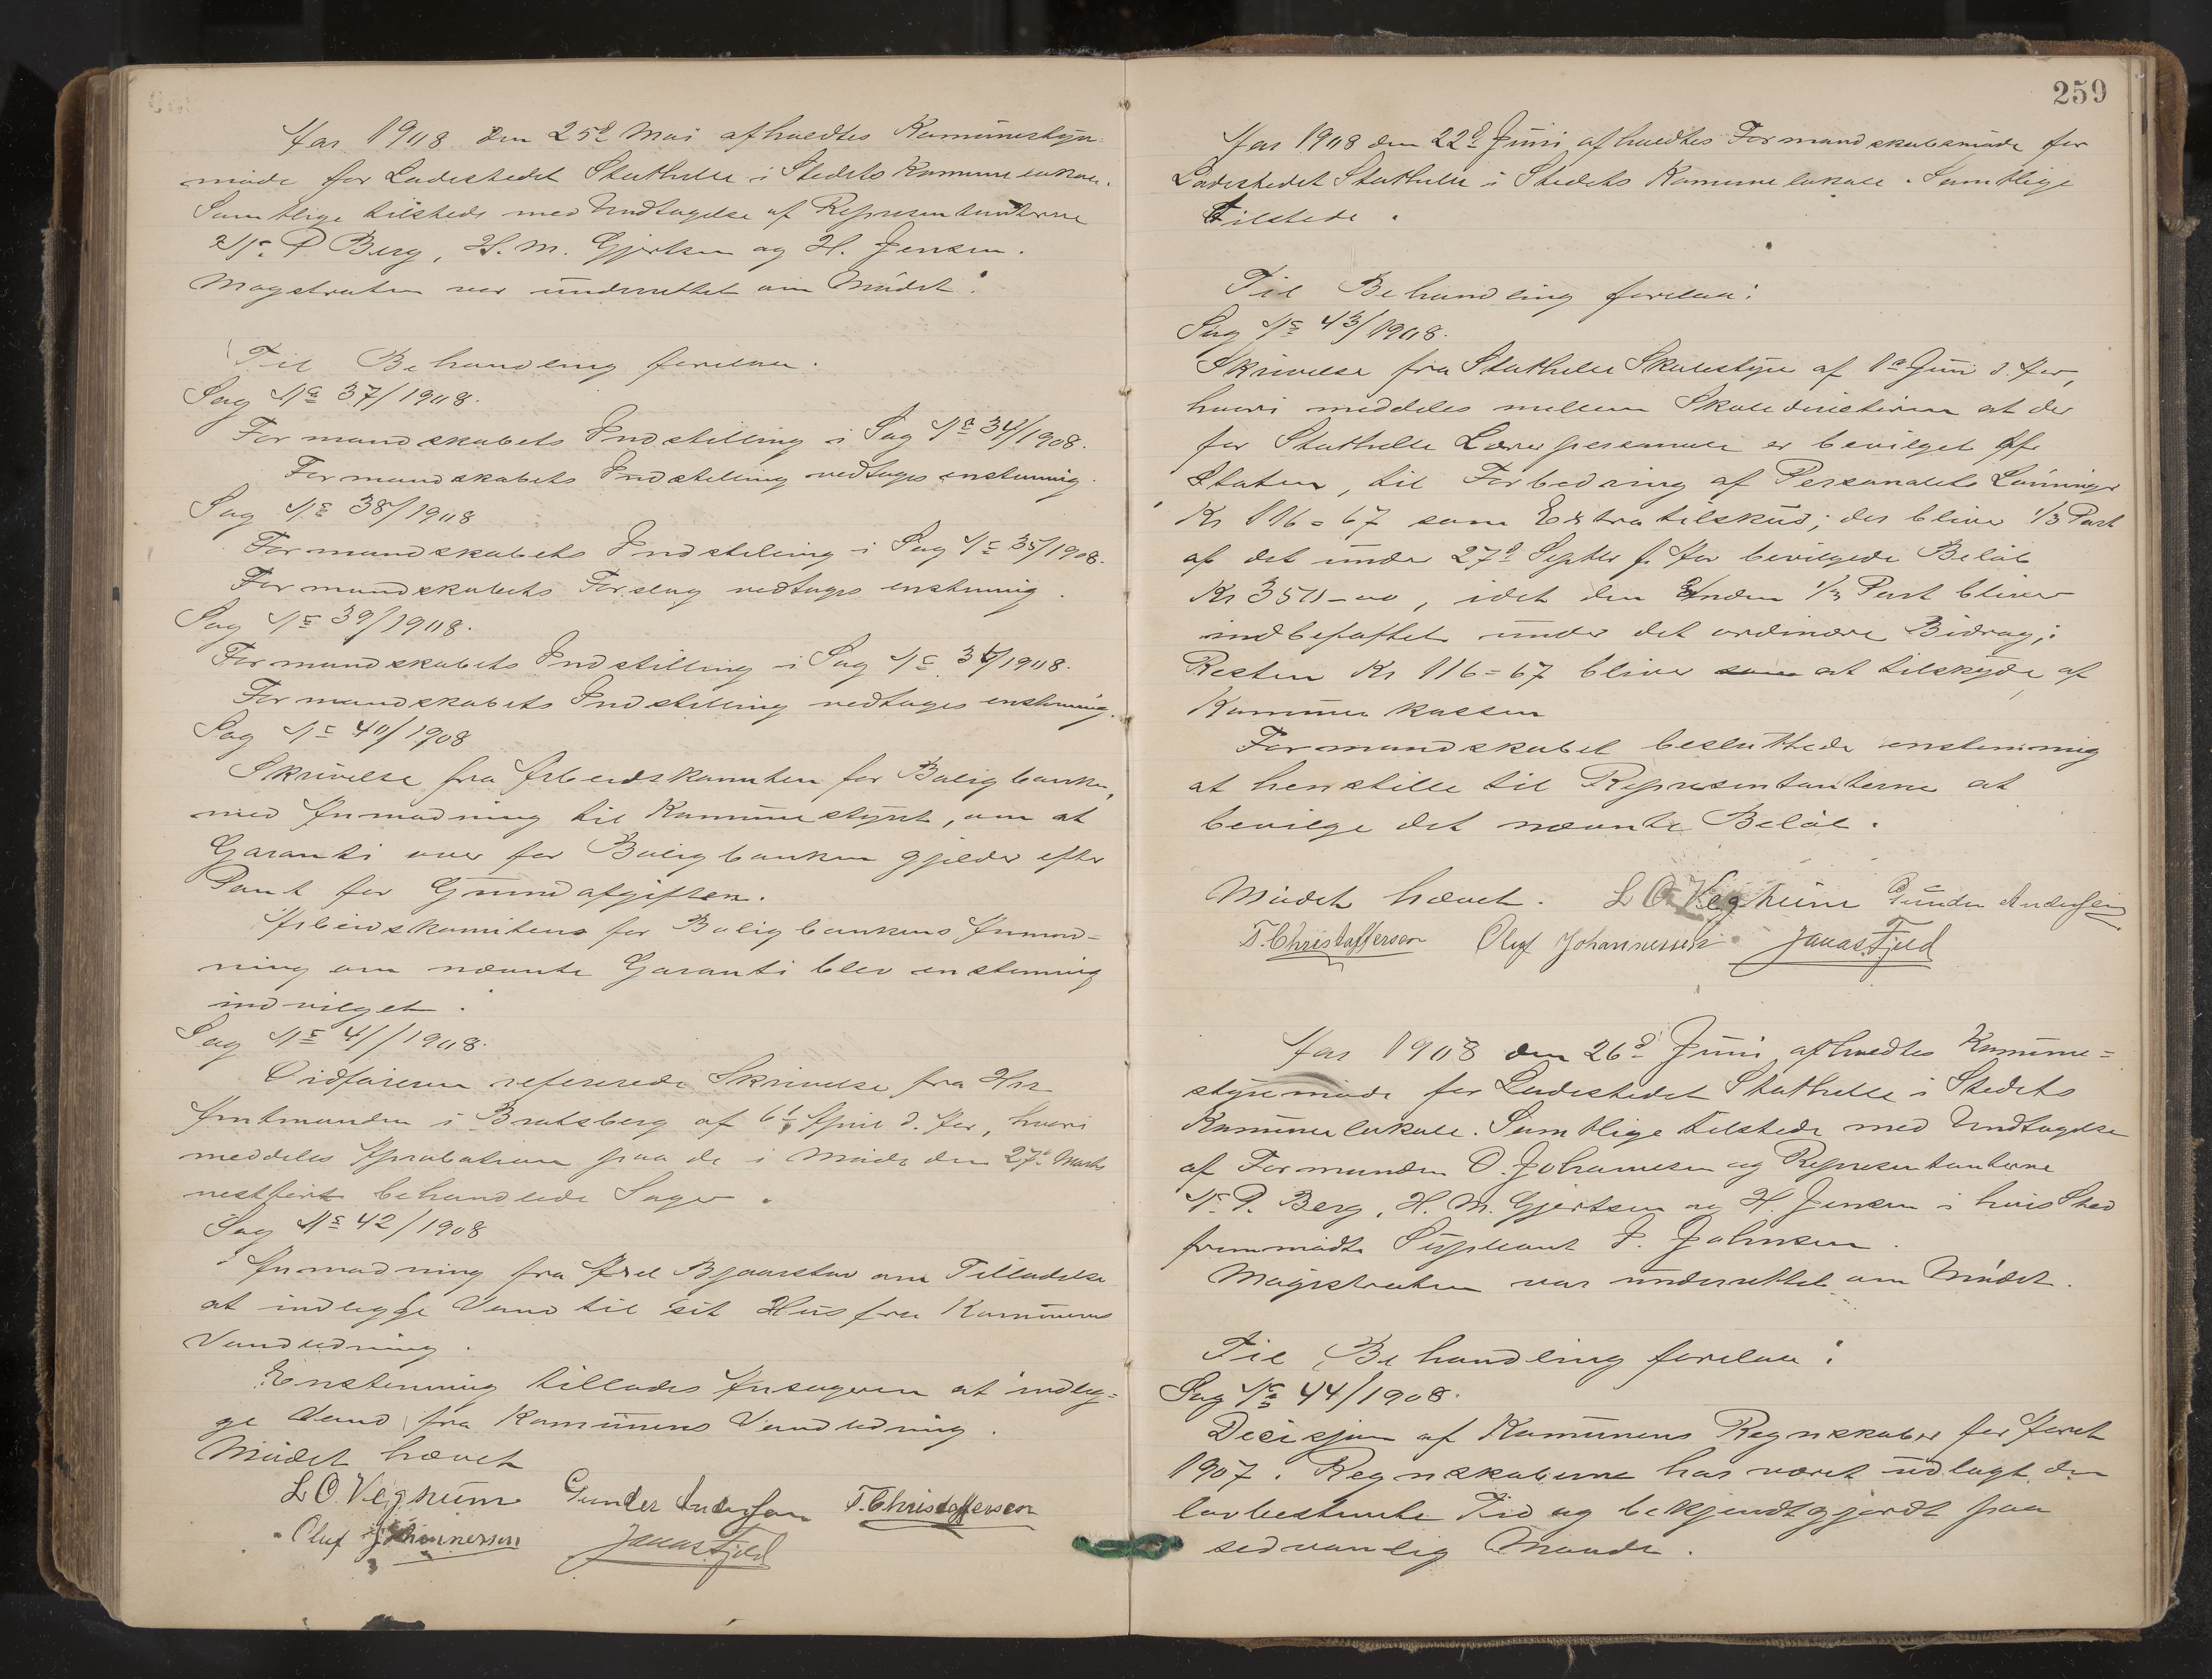 Aar 1908 den 25d Mai afholdtes Kommunestyre
møde for Ladestedet Stathelle i Stedets Kommunelokale.
Samtlige tilstede med Undtagelse af Repræsentanterne
N. P. Berg, H. M. Gjertsen og H. Jensen.
Magistraten var underrettet om Mødet.
Til Behandling forelaa.
Sag No 37/1908.
Formandskabets Indstilling i Sag No 34/1908.
Formandskabets Indstilling vedtages enstemmig.
Sag No 38/1908
Formandskabets Indstilling i Sag No 35/1908.
Formandskabets Forslag vedtages enstemmig.
Sag No 39/1908.
Formandskabets Indstilling i Sag No 36/1908.
Formandskabets Indstilling vedtages enstemmig.
Sag No 40/1908
Skrivelse fra Arbeidskomiten for Boligbanken,
med Anmodning til Kommunestyret, om at
Garanti over for Boligbanken gjælder efter
Pant for Grundafgiften.
Arbeidskomitens for Boligbankens Anmod=
ning om nævnte Garanti blev enstemmig
indvilget.
Sag No 41/1908.
Ordføreren refererede Skrivelse fra Hrr
Amtmanden i Bratsberg af 6t April d. Aar, hvori
meddeles Aprobation paa de i Møde den 27d Marts
nestført behandlede Sager.
Sag No 42/1908
Anmodning fra Axel Bjaarstad om Tilladelse
at indlegge Vand til sit Hus fra Kommunens
Vandledning.
Enstemmig tillades Ansøgeren at indleg=
ge Vand fra Kommunens Vandledning.
Mødet hævet
L O. Vegheim Gunder Andersen T. Christoffersen
Oluf Johannessen Jonas Fjeld
259
Aar 1908 den 22d Juni afholdtes Formandskabsmøde for
Ladestedet Stathelle i Stedets Kommunelokale. Samtlige
Tilstede.
Til Behandling forelaa:
Sag No 43/1908.
Skrivelse fra Stathelle Skolestyre af 1d Juni d. Aar,
hvori meddeles mellem Skoledirektøren at der
for Stathelle Lærerpersonale er bevilget af
Staten, til Forbedring af Personalets Lønninger
Kr 116=67 som Extratilskud; der bliver 1/3 Part
af det under 27d Septbr f. Aar bevilgede Beløb
Kr 350-00, idet den Anden 1/3 Part bliver
indbefattet under det ordinære Bidrag;
Resten Kr 116=67 bliver som at tilskyde af
Kommunekassen
Formandskabet besluttede enstemmig
at henstille til Repræsentanterne at
bevilge det nævnte Beløb.
Mødet hævet. L O Vegheim Gunder Andersen
T. Christoffersen Oluf Johannessen Jonas Fjeld
Aar 1908 den 26d Juni afholdtes Kommune=
styremøde for Ladestedet Stathelle i Stedets
Kommunelokale. Samtlige tilstede med Undtagelse
af Formanden O. Johannesen og Repræsentanterne
N. P. Berg, H. M. Gjertsen og H. Jensen i hvis Sted
fremmødte Supleant J. Johnsen.
Magistraten var underrettet om Mødet.
Til Behandling forelaa:
Sag No 44/1908.
Decisjon af Kommunens Regnskaber for Aaret
1907. Regnskaberne har været udlagt den
lovbestemte Tid og bekjendtgjordt paa
sedvanlig Maade.